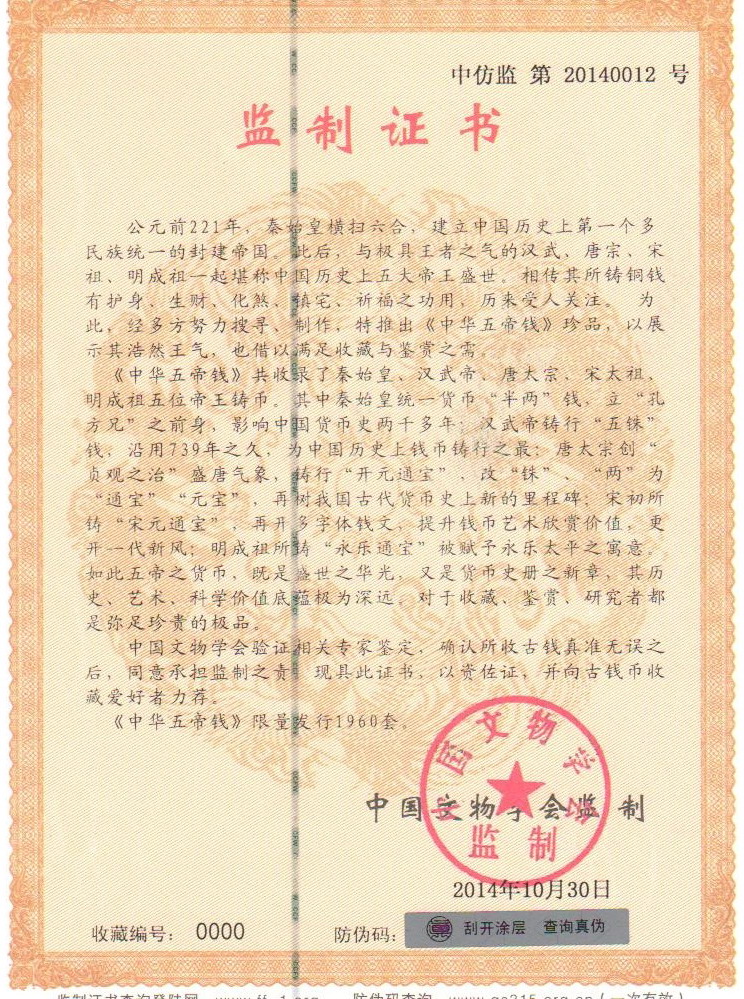 中仿监 第 20140012 号
监制证书
公元前221年，秦始皇横扫六合，建立中国历史上第一个多
民族统一的封建帝国。此后，与极具王者之气的汉武、唐宗、宋
祖、明成祖一起堪称中国历史上五大帝王盛世。相传其所铸铜钱
有护身、生财、化煞、镇宅、祈福之功用，历来受人关注。 为
此，经多方努力搜寻、制作，特推出《中华五帝钱》珍品，以展
示其浩然王气，也借以满足收藏与鉴赏之需。
《中华五帝钱》共收录了秦始皇、汉武帝、唐太宗、宋太祖、
明成祖五位帝王铸币。其中秦始皇统一货币“半两”钱，立“孔
方兄”之前身，影响中国货币史两千多年；汉武帝铸行“五铢”
钱，沿用739年之久，为中国历史上钱币铸行之最；唐太宗创“
贞观之治”盛唐气象，铸行“开元通宝”、改“铢”、“两”为
“通宝”“元宝”，再树我国古代货币史上新的里程碑；宋初所
铸“宋元通宝”，再开多字体钱文，提升钱币艺术欣赏价值，更
开一代新风；明成祖所铸“永乐通宝”被赋予永乐太平之寓意。
如此五帝之货币，既是盛世之华光，又是货币史册之新章，其历
史、艺术、科学价值底蕴极为深远，对于收藏、鉴赏、研究者都
是弥足珍贵的极品。
中国文物学会验证相关专家鉴定，确认所收古钱真准无误之
后，同意承担监制之责，现具此证书，以资佐证，并向古钱币收
藏爱好者力荐。
《中华五帝钱》限量发行1960套。
中国文物学会监制
中国文物学会
监制
2014年10月30日
收藏编号： 0000
防伪码： 刮开涂层 查询真伪
监制证书查询登陆网 防伪码查询 （一次有效）